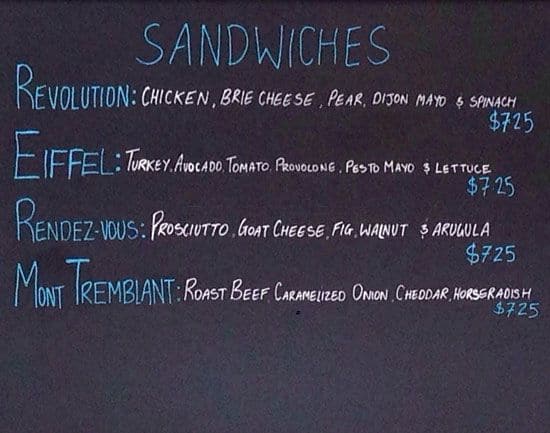 SANDWICHES
REVOLUTION: CHICKEN, BRIE CHEESE, PEAR, DIJON MAYO & SPINACH
$7.25
EIFFEL: TURKEY, AVOCADO, TOMATO, PROVOLONE, PESTO MAYO & LETTUCE
$7.25
RENDEZ-VOUS: PROSCIUTTO, GOAT CHEESE, FIG, WALNUT & ARUGULA
$7.25
MONT TREMBLANT: ROAST BEEF, CARAMELIZED ONION, CHEDDAR, HORSERADISH
$7.25